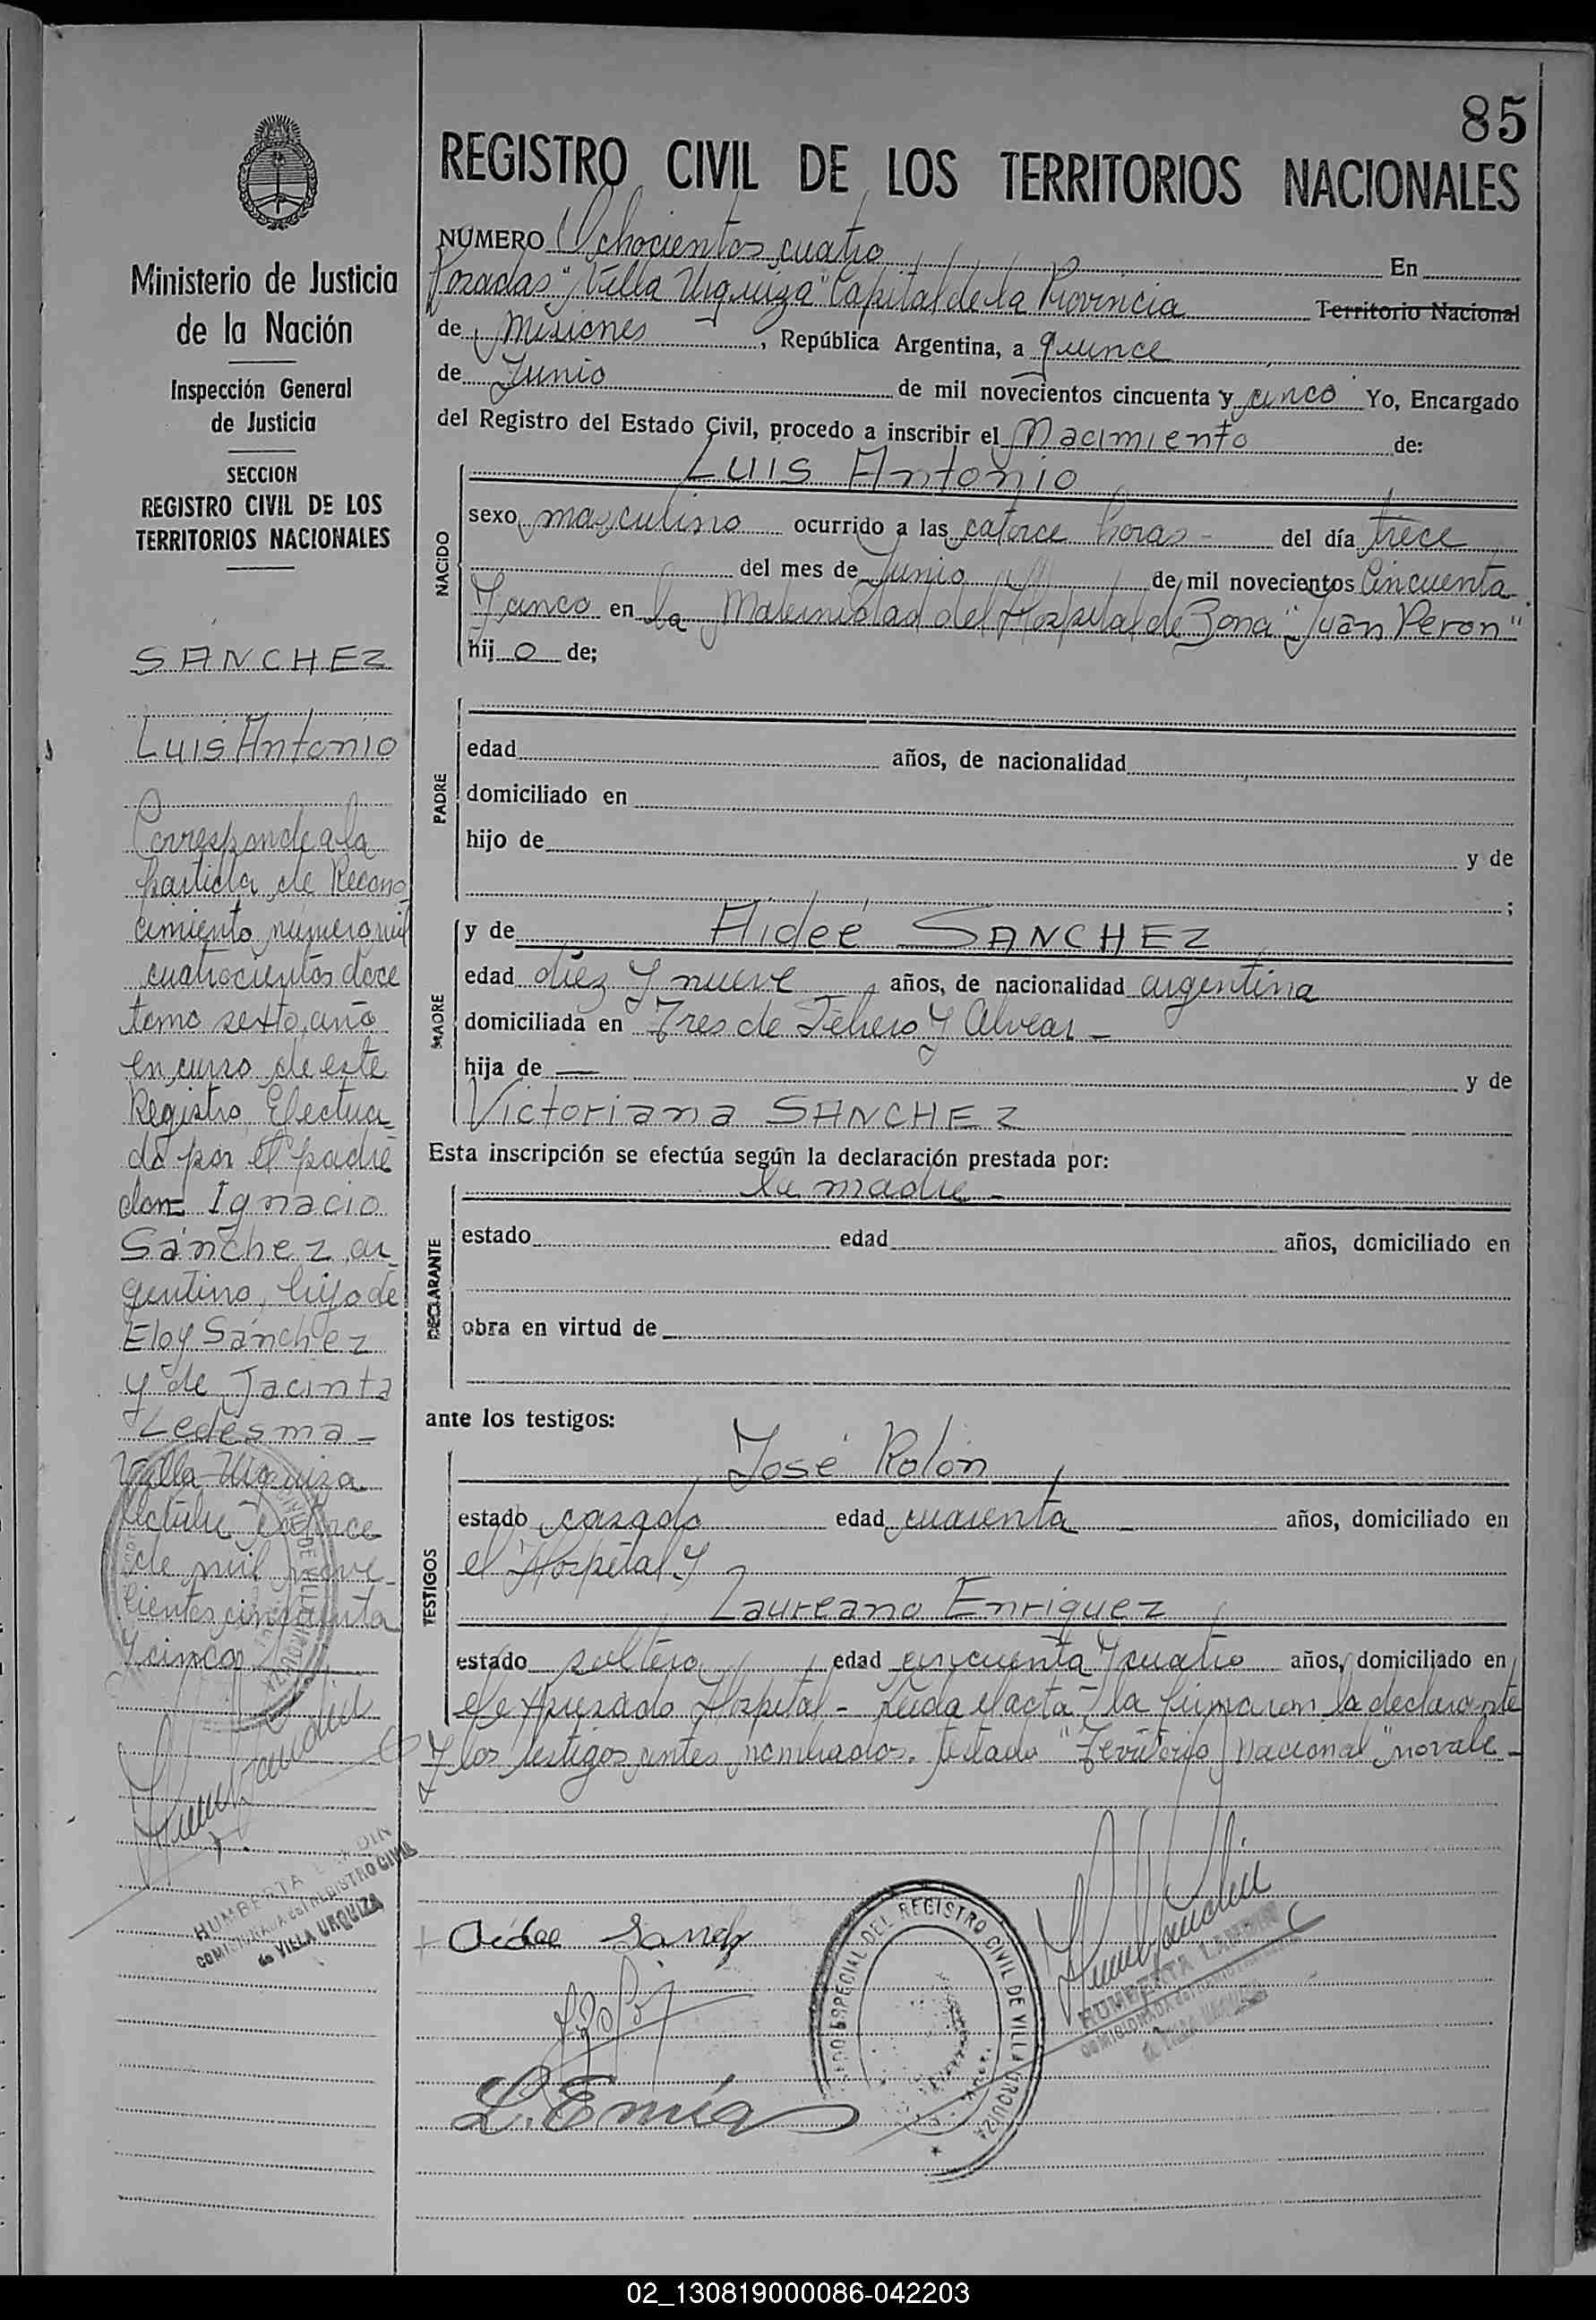 85
REGISTRO CIVIL DE LOS TERRITORIOS NACIONALES
Ministerio de Justicia
de la Nación
Inspección General
de Justicia
SECCION
REGISTRO CIVIL DE LOS
TERRITORIOS NACIONALES
SANCHEZ
Luis Antonio
Corresponde a la
partida de Recono
cimiento número mil
cuatrocientos doce
tomo sexto, año
en curso de este
Registro, Efectua
do por el padre
don= Ignacio
Sánchez, ar_
gentino, hijo de
Eloy Sánchez
y de Jacinta
Ledesma_
Villa Urquiza
Octubre catorce
de mil nove_
cientos cincuenta
y cinco
HUMBERTA LANDIN
COMISIONADA del REGISTRO CIVIL
de VILLA URQUIZA
NUMERO Ochocientos cuatro En
Posadas "Villa Urquiza" Capital de la Provincia Territorio Nacional
de Misiones, República Argentina, a quince
de Junio de mil novecientos cincuenta y cinco Yo, Encargado
del Registro del Estado Civil, procedo a inscribir el Nacimiento de:
NACIDO
Luis Antonio
sexo masculino ocurrido a las catorce horas - del día trece
del mes de Junio de mil novecientos Cincuenta
y cinco en la Maternidad del Hospital de Zona "Juan Peron"
hijo de;
PADRE
edad años, de nacionalidad
domiciliado en
hijo de y de
;
MADRE
y de Aideé SANCHEZ
edad diez y nueve años, de nacionalidad argentina
domiciliada en Tres de Febrero y Alvear -
hija de — y de
Victoriana SANCHEZ
Esta inscripción se efectúa según la declaración prestada por:
DECLARANTE
la madre -
estado edad años, domiciliado en
obra en virtud de
ante los testigos:
TESTIGOS
José Rolón
estado casado edad cuarenta - años, domiciliado en
el Hospital y
Laureano Enriquez
estado soltero edad cincuenta y cuatro años, domiciliado en
el expresado Hospital - Leida el acta, la firmaron la declarante
y los testigos antes nombrados. testado "Territorio Nacional" no vale -
Aidee Sanch
REGISTRO CIVIL DE VILLA URQUIZA
HUMBERTA LANDIN
COMISIONADA del REGISTRO CIVIL
de VILLA URQUIZA
02_130819000086-042203